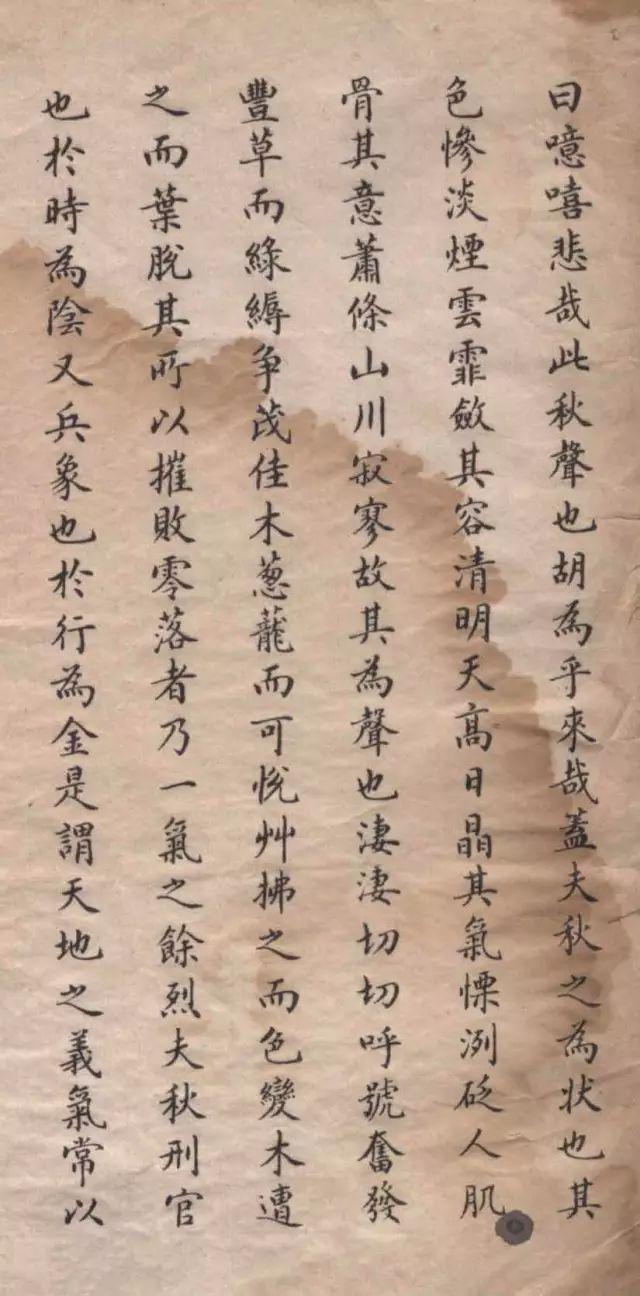 曰噫嘻悲哉此秋聲也胡為乎來哉蓋夫秋之為狀也其
色慘淡煙雲霏斂其容清明天高日晶其氣慄洌砭人肌
骨其意蕭條山川寂寥故其為聲也淒淒切切呼號奮發
豐草而綠縟争茂佳木葱蘢而可悅艸拂之而色變木遭
之而葉脫其所以摧敗零落者乃一氣之餘烈夫秋刑官
也於時為陰又兵象也於行為金是謂天地之義氣常以